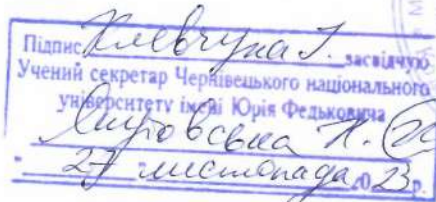 Підпис Клевчука І. засвідчую
Учений секретар Чернівецького національного
університету імені Юрія Федьковича
Н.
"27" листопада 2023 р.